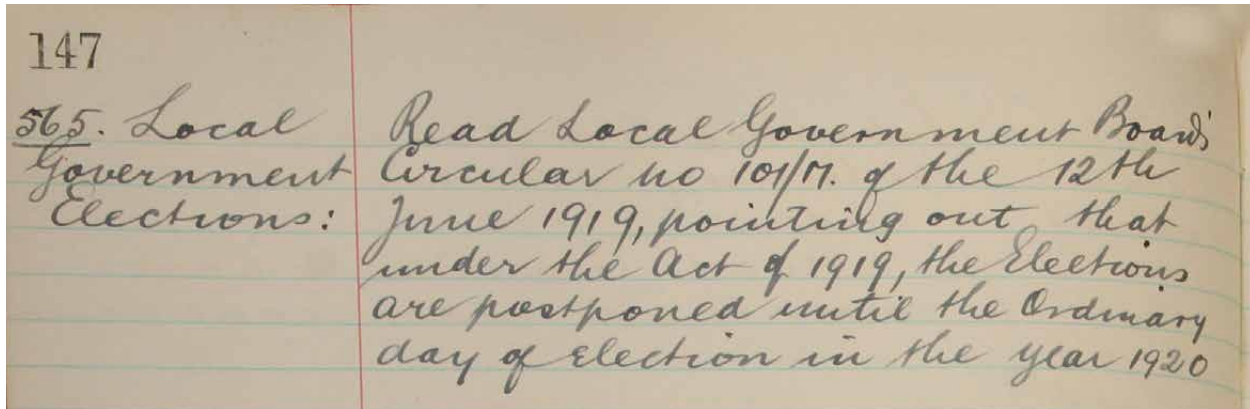 147
565. Local
Government
Elections:
Read Local Government Board's
Circular no 101/M. of the 12th
June 1919, pointing out that
under the Act of 1919, the Elections
are postponed until the Ordinary
day of Election in the year 1920